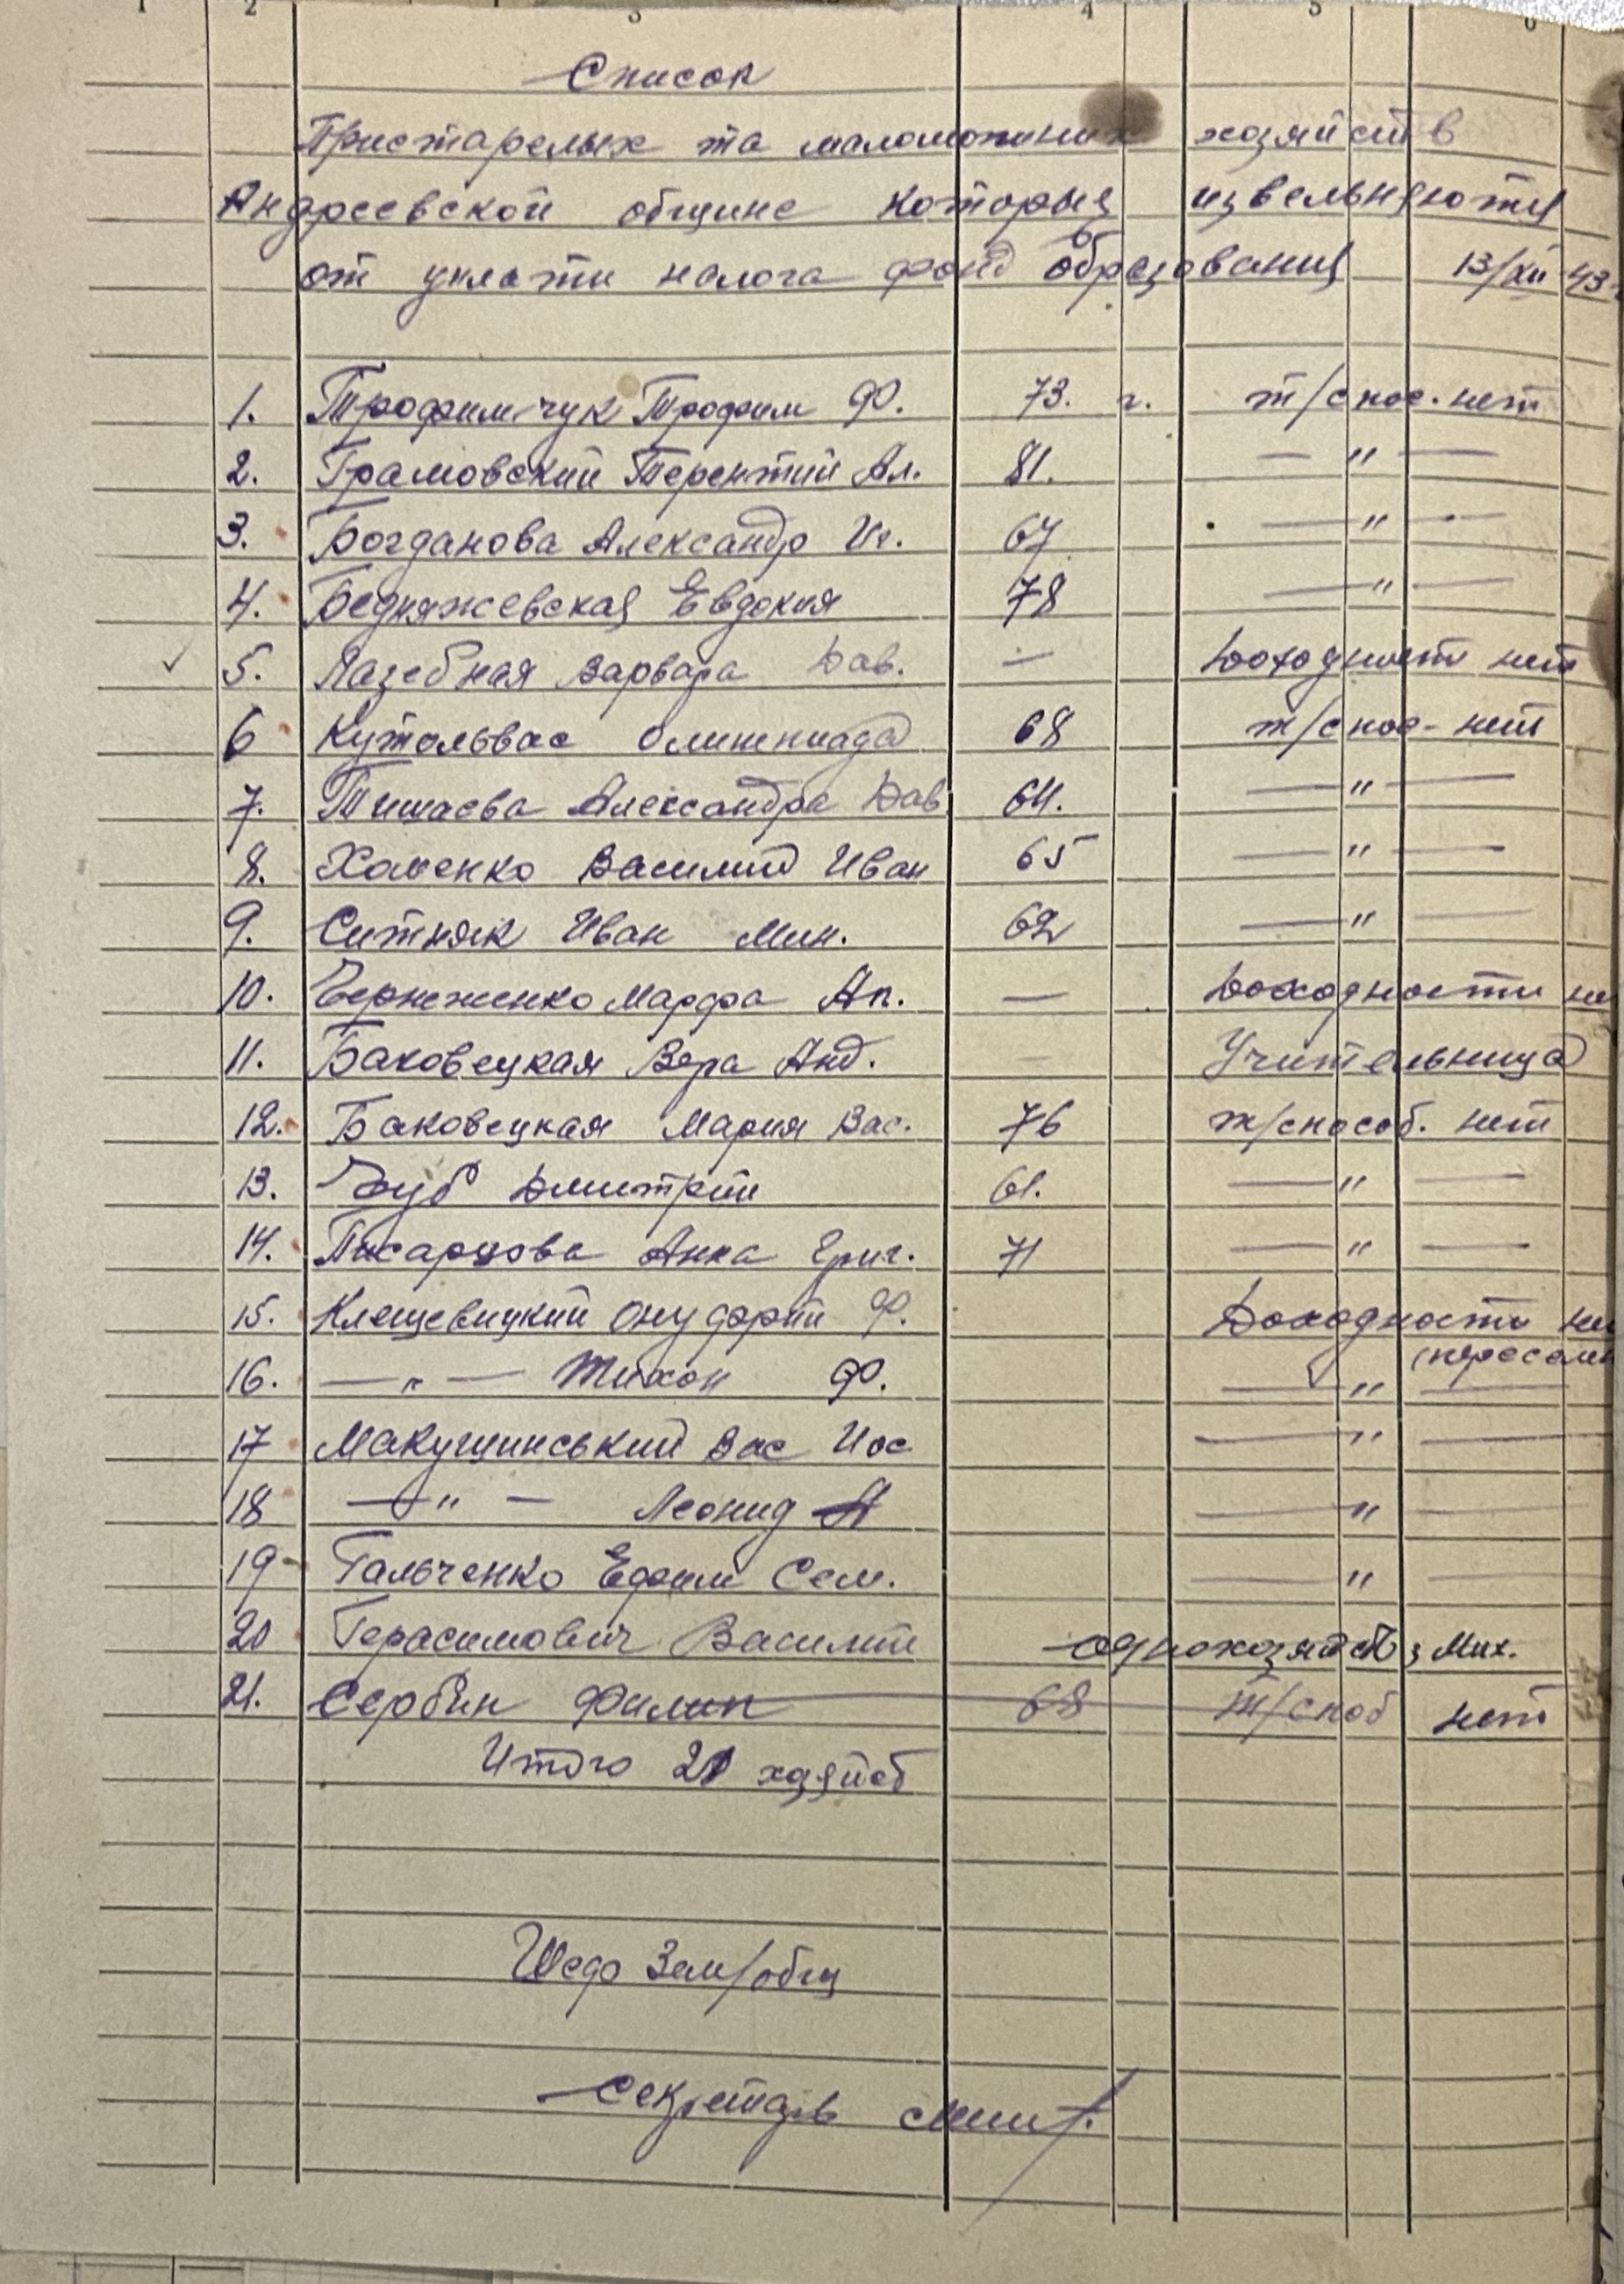 1 2 3 4 5 6
Список
Пристарелых та маломощних хозяйств
Андреевской общине которыя извельняютя
от уплати налога фонд образования 13/XII 43.
1. Трофимчук Трофим Ф. 73. г. т/спос. нет
2. Грамовский Терентий Ал. 81. — " —
3. Богданова Александр Иг. 67 — " —
4. Бедняжевская Евдокия 78 — " —
5. Лазебная Варвара Дав. — Доходност нет
6 Кутользас Олимпиада 68 т/спос- нет
7. Тишаева Александра Дав. 64. — " —
8. Хаменко Василий Иван 65 — " —
9. Ситняк Иван Мин. 62 — " —
10. Чернеженко Марфа Ап. — Доходности не
11. Баковецкая Вера Анд. — Учительница
12. Баковецкая Мария Вас. 76 т/способ. нет
13. Зуб Дмитрий 61. — " —
14. Писарцова Анна Григ. 71 — " —
15. Клещевицкий Онуфрий Ф. Доходности не
(пересел
16. — " — Тихон Ф. — " —
17 Макущинський Вас Иос — " —
18 — " — Леонид — " —
19 Гальченко Ефим Сем. — " —
20 Герасимович Василий однохозяйств з Мих.
21. Сербин Филип 68 т/споб нет
Итого 21 хозяйств
Шеф Зем/общ
Секретарь